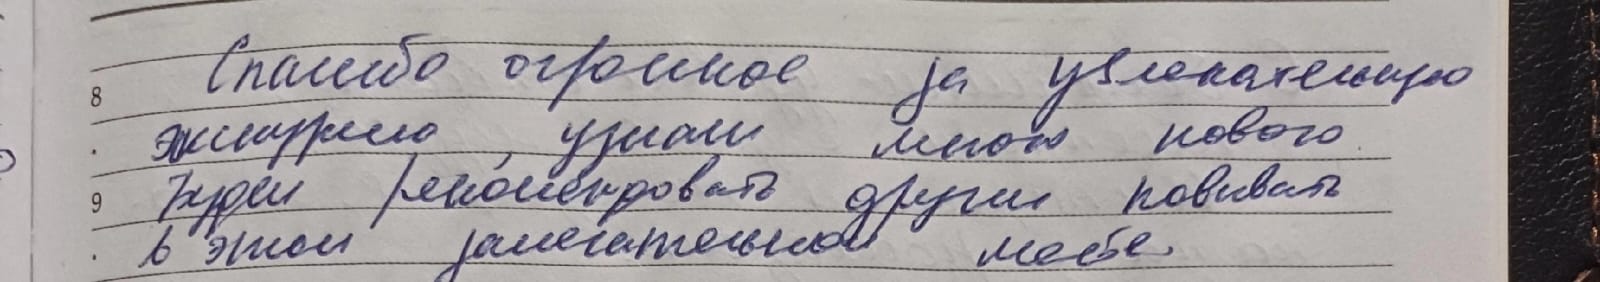 Спасибо огромное за увлекательную
8
экскурсию, узнали много нового.
9 Будем рекомендовать другим побывать
в этом замечательном месте.